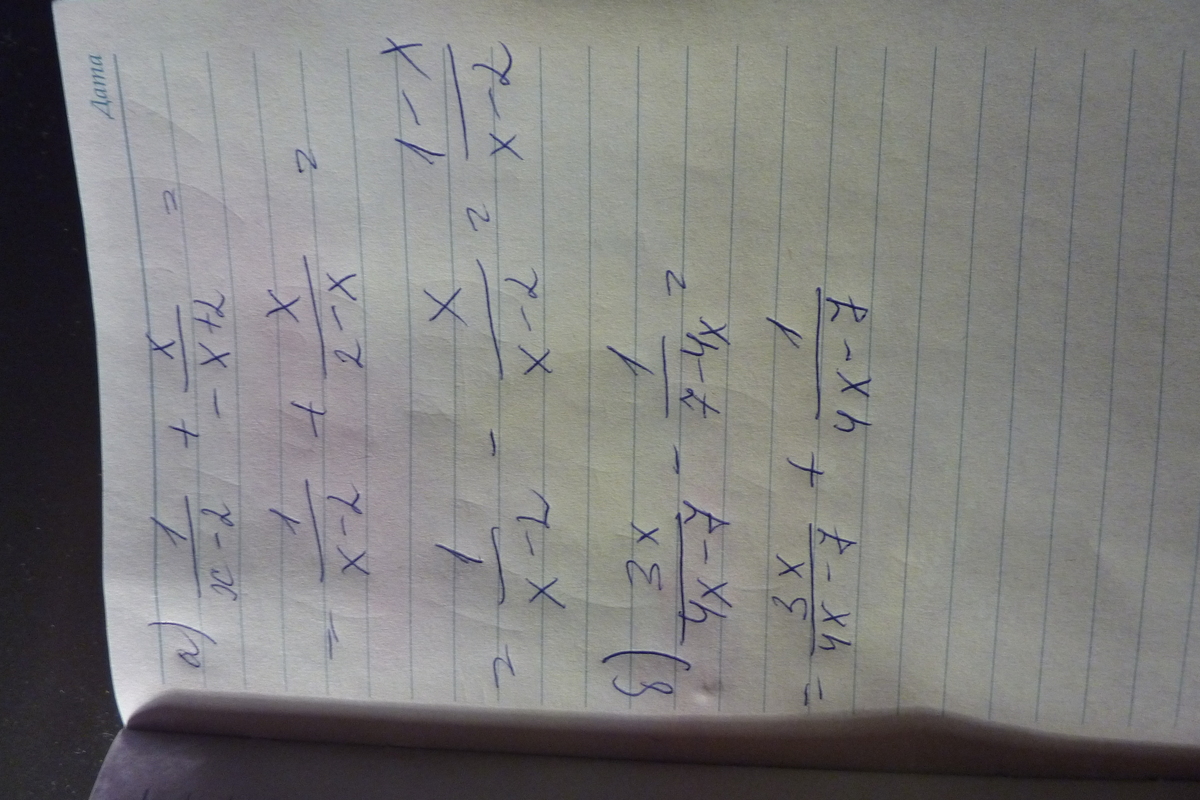 Дата
а) 1/(x-2) + x/(-x+2) =
= 1/(x-2) + x/(2-x) =
= 1/(x-2) - x/(x-2) = (1-x)/(x-2)
б) 3x/(4x-7) - 1/(7-4x) =
= 3x/(4x-7) + 1/(4x-7)